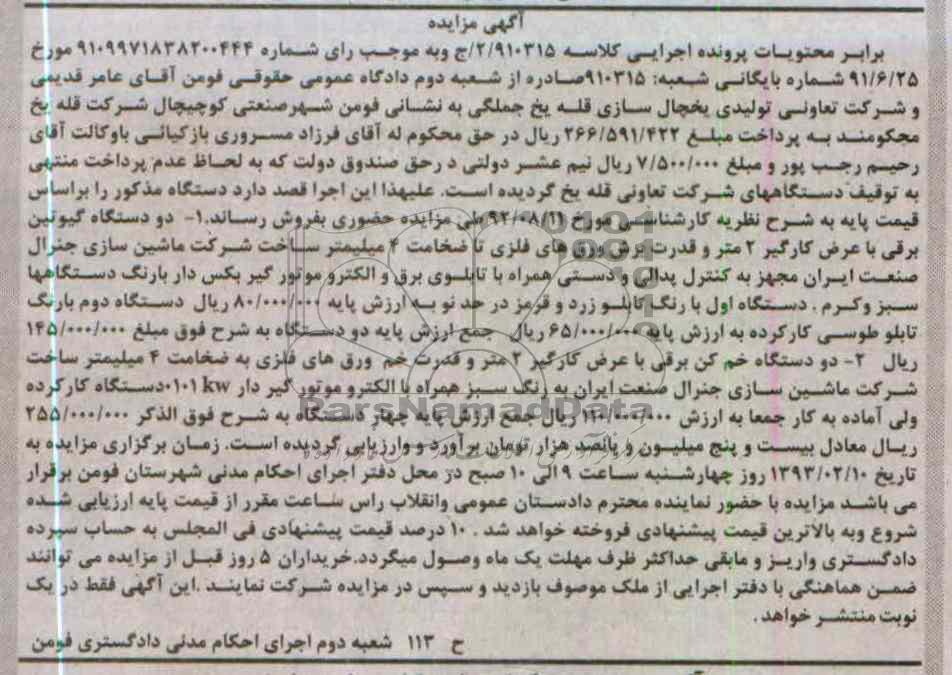 آگهی مزایده
برابر محتویات پرونده اجرایی کلاسه ۲/۹۱۰۳۱۵/ج وبه موجب رای شماره ۹۱۰۹۹۷۱۸۳۸۲۰۰۴۴۴ مورخ
۹۱/۶/۲۵ شماره بایگانی شعبه: ۹۱۰۳۱۵صادره از شعبه دوم دادگاه عمومی حقوقی فومن آقای عامر قدیمی
و شرکت تعاونی تولیدی یخچال سازی قله یخ جملگی به نشانی فومن شهرصنعتی کوچیچال شرکت قله یخ
محکومند به پرداخت مبلغ ۲۶۶/۵۹۱/۴۲۲ ریال در حق محکوم له آقای فرزاد مسروری بازکیائی باوکالت آقای
رحیم رجب پور و مبلغ ۷/۵۰۰/۰۰۰ ریال نیم عشر دولتی د رحق صندوق دولت که به لحاظ عدم پرداخت منتهی
به توقیف دستگاههای شرکت تعاونی قله یخ گردیده است. علیهذا این اجرا قصد دارد دستگاه مذکور را براساس
قیمت پایه به شرح نظریه کارشناسی مورخ ۹۲/۰۸/۱۱ طی مزایده حضوری بفروش رساند.۱- دو دستگاه گیوتین
برقی با عرض کارگیر ۲ متر و قدرت برش ورق های فلزی تا ضخامت ۴ میلیمتر ساخت شرکت ماشین سازی جنرال
صنعت ایران مجهز به کنترل پدالی و دستی همراه با تابلوی برق و الکترو موتور گیر بکس دار بارنگ دستگاهها
سبز وکرم . دستگاه اول با رنگ تابلو زرد و قرمز در حد نو به ارزش پایه ۸۰/۰۰۰/۰۰۰ ریال دستگاه دوم بارنگ
تابلو طوسی کارکرده به ارزش پایه ۶۵/۰۰۰/۰۰۰ ریال جمع ارزش پایه دو دستگاه به شرح فوق مبلغ ۱۴۵/۰۰۰/۰۰۰
ریال ۲- دو دستگاه خم کن برقی با عرض کارگیر ۲ متر و قدرت خم ورق های فلزی به ضخامت ۴ میلیمتر ساخت
شرکت ماشین سازی جنرال صنعت ایران به رنگ سبز همراه با الکترو موتور گیر دار kw دستگاه کارکرده
ولی آماده به کار جمعا به ارزش ۱۱۰/۰۰۰/۰۰۰ ریال جمع ارزش پایه چهار دستگاه به شرح فوق الذکر ۲۵۵/۰۰۰/۰۰۰
ریال معادل بیست و پنج میلیون و پانصد هزار تومان برآورد و وارزیابی گردیده است. زمان برگزاری مزایده به
تاریخ ۱۳۹۳/۰۲/۱۰ روز چهارشنبه ساعت ۹ الی ۱۰ صبح در محل دفتر اجرای احکام مدنی شهرستان فومن برقرار
می باشد مزایده با حضور نماینده محترم دادستان عمومی وانقلاب راس ساعت مقرر از قیمت پایه ارزیابی شده
شروع وبه بالاترین قیمت پیشنهادی فروخته خواهد شد . ۱۰ درصد قیمت پیشنهادی فی المجلس به حساب سپرده
دادگستری واریز و مابقی حداکثر ظرف مهلت یک ماه وصول میگردد.خریداران ۵ روز قبل از مزایده می توانند
ضمن هماهنگی با دفتر اجرایی از ملک موصوف بازدید و سپس در مزایده شرکت نمایند .این آگهی فقط در یک
نوبت منتشر خواهد .
ح ۱۱۳ شعبه دوم اجرای احکام مدنی دادگستری فومن
ParsNamadData